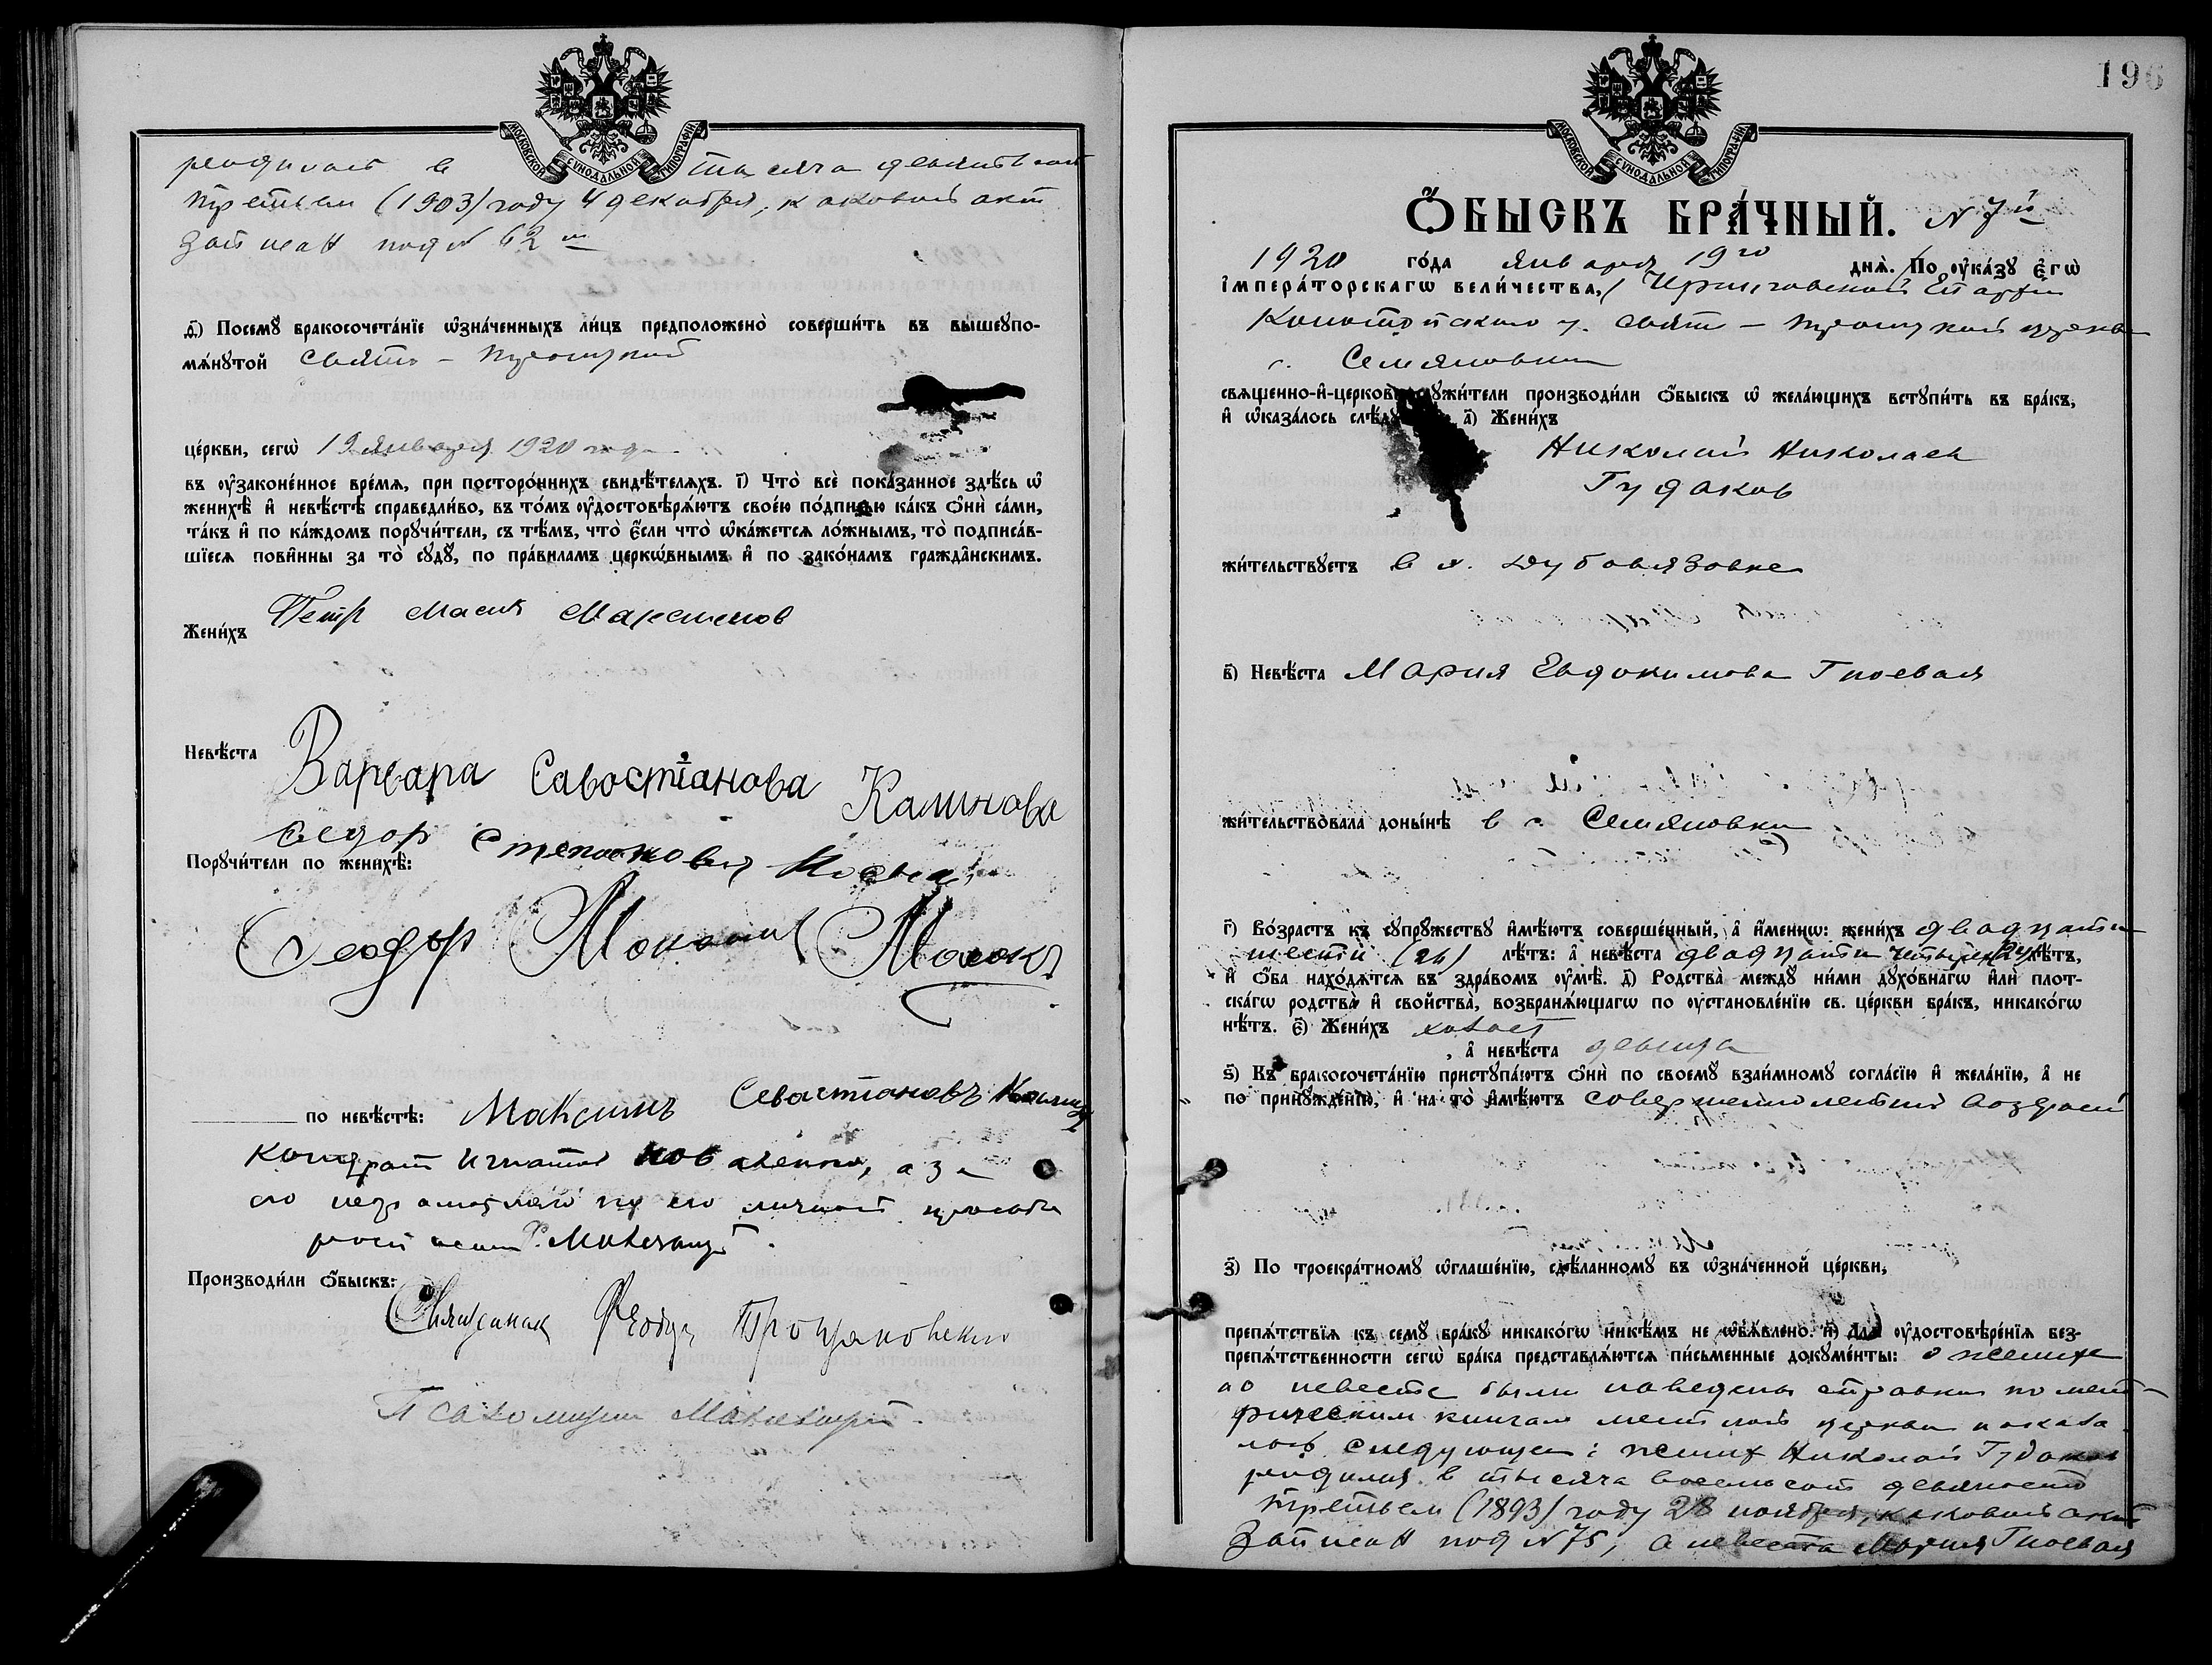 МОСКОВСКОЙ СѴНОДАЛЬНОЙ ТИПОГРАФІИ
родилась в тысяча девятьсот
третьем (1903) году 4 декабря, каковой акт
записан под N 62 м
д҃) Посемꙋ бракосочета́нїе ѡ҆зна́ченныхъ ли́цъ предположено̀ соверши́ть въ вышеꙋпо-
мѧ́нꙋтой Свято - Троицкой
це́ркви, сегѡ̀ 19 января 1920 года
въ ᲂу҆законе́нное вре́мѧ, при посторо́ннихъ свидѣ́телѧхъ. і҃) Что̀ всѐ пока́занное здѣ́сь ѡ҆
женихѣ̀ и҆ невѣ́стѣ справедли́во, въ то́мъ ᲂу҆достовѣрѧ́ютъ свое́ю по́дписью ка́къ ѻ҆нѝ са́ми,
та́къ и҆ по ка́ждомъ порꙋчи́тели, съ тѣ́мъ, что̀ є҆́сли что̀ ѡ҆ка́жетсѧ ло́жнымъ, то̀ подписа́в-
шїесѧ пови́нны за то̀ сꙋдꙋ̀, по пра́виламъ церко́внымъ и҆ по зако́намъ гражда́нскимъ.
Жени́хъ Петр Масик Максимов
Невѣ́ста Варвара Савостіанова Калинова
Порꙋчи́тели по женихѣ̀:
Федор Степанович
Феодор
по невѣ́стѣ: Максимъ Севастіановъ
Кондрат Игнатов Коваленко, а за
его неграмотного по его личной просьбе
Производи́ли ѻ҆́быскъ: Священник Феодор
Псаломщик
196
МОСКОВСКОЙ СѴНОДАЛЬНОЙ ТИПОГРАФІИ
Ѻ҆́БЫСКЪ БРА́ЧНЫЙ. N 7й
1920 го́да января 19го днѧ̀. По ᲂу҆ка́зꙋ є҆гѡ̀
і҆мпера́торскагѡ вели́чества, Черниговской Епархии
Конотопского у. Свято - Троицкой церкви
с. Семяновки
свѧщенно-и҆-церковнослꙋжи́тели производи́ли ѻ҆́быскъ ѡ҆ жела́ющихъ встꙋпи́ть въ бра́къ,
и҆ ѡ҆каза́лось слѣ́дꙋющее: а҃) Жени́хъ
Николай Николаев
Гудаков
жи́тельствꙋетъ в м. Дубовязовке
в҃) Невѣ́ста Мария Евдокимова Гноевая
жи́тельствовала доны́нѣ в с. Семяновки
г҃) Во́зрастъ къ сꙋпрꙋ́жествꙋ и҆мѣ́ютъ соверше́нный, а҆ и҆́меннѡ: жени́хъ двадцати
шести (26) лѣ́тъ: а҆ невѣ́ста двадцати четырех (24) лѣ́тъ,
и҆ ѻ҆́ба нахо́дѧтсѧ въ здра́вомъ ᲂу҆мѣ̀. д҃) Родства̀ междꙋ̀ ни́ми дꙋхо́внагѡ и҆лѝ плот-
ска́гѡ родства̀ и҆ сво́йства, возбранѧ́ющагѡ по ᲂу҆становле́нїю св. це́ркви бра́къ, никако́гѡ
нѣ́тъ. є҃) Жени́хъ холост
, а҆ невѣ́ста девица
ѕ҃) Къ бракосочета́нїю пристꙋпа́ютъ ѻ҆нѝ по своемꙋ̀ взаи́мномꙋ согла́сїю и҆ жела́нїю, а҆ не
по принꙋжде́нїю, и҆ на то̀ и҆мѣ́ютъ совершеннолетний возраст
з҃) По троекра́тномꙋ ѡ҆глаше́нїю, сдѣ́ланномꙋ въ ѡ҆зна́ченной це́ркви,
препѧ́тствїѧ къ семꙋ̀ бра́кꙋ никако́гѡ никѣ́мъ не ѡ҆б̾ѧ́влено. и҃) Длѧ̀ ᲂу҆достовѣре́нїѧ без-
препѧ́тственности сегѡ̀ бра́ка представлѧ́ютсѧ пи́сьменные докꙋме́нты: о женихе
и о невесте были наведены справки по мет-
рическим книгам местной церкви и оказа
лось следующее: жених Николай Гудаков
родился в тысяча восемьсот девяносто
третьем (1893) году 28 ноября, каковой акт
записан под N 75, а невеста Мария Гноевая